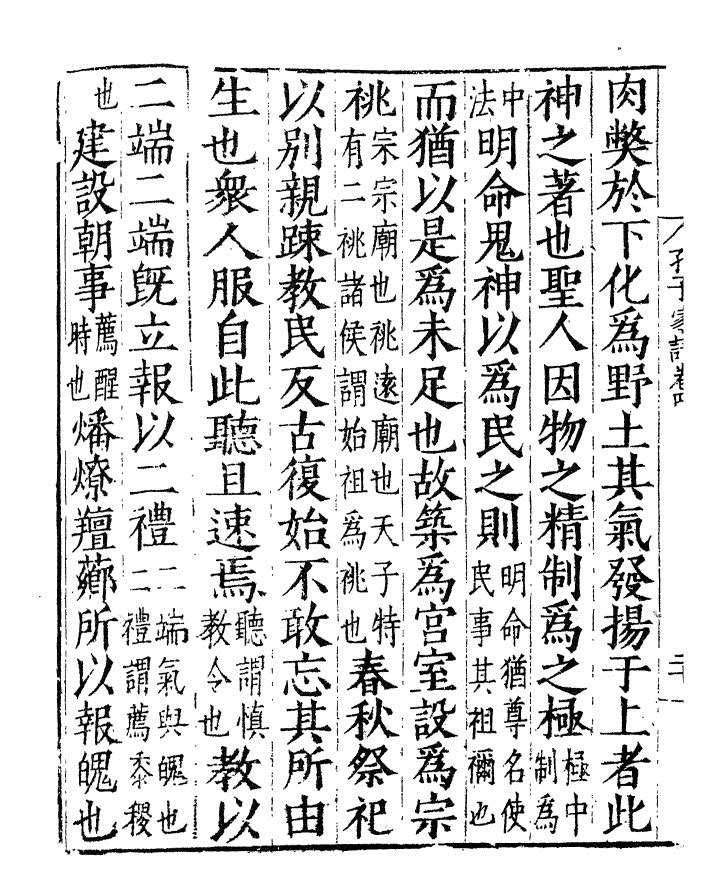 孔子家語卷四 二十
肉獘於下化爲野土其氣發揚于上者此
神之著也聖人因物之精制爲之極極中制爲
中法明命鬼神以爲民之則明命猶尊名使民事其祖禰也
而猶以是爲未足也故築爲宫室設爲宗
祧宗宗廟也祧遠廟也天子特有二祧諸侯謂始祖爲祧也春秋祭祀
以別親踈教民反古復始不敢忘其所由
生也衆人服自此聽且速焉聽謂慎教令也教以
二端二端旣立報以二禮二端氣與魄也二禮謂薦黍稷
也建設朝事薦醒時也燔燎羶薌所以報魄也